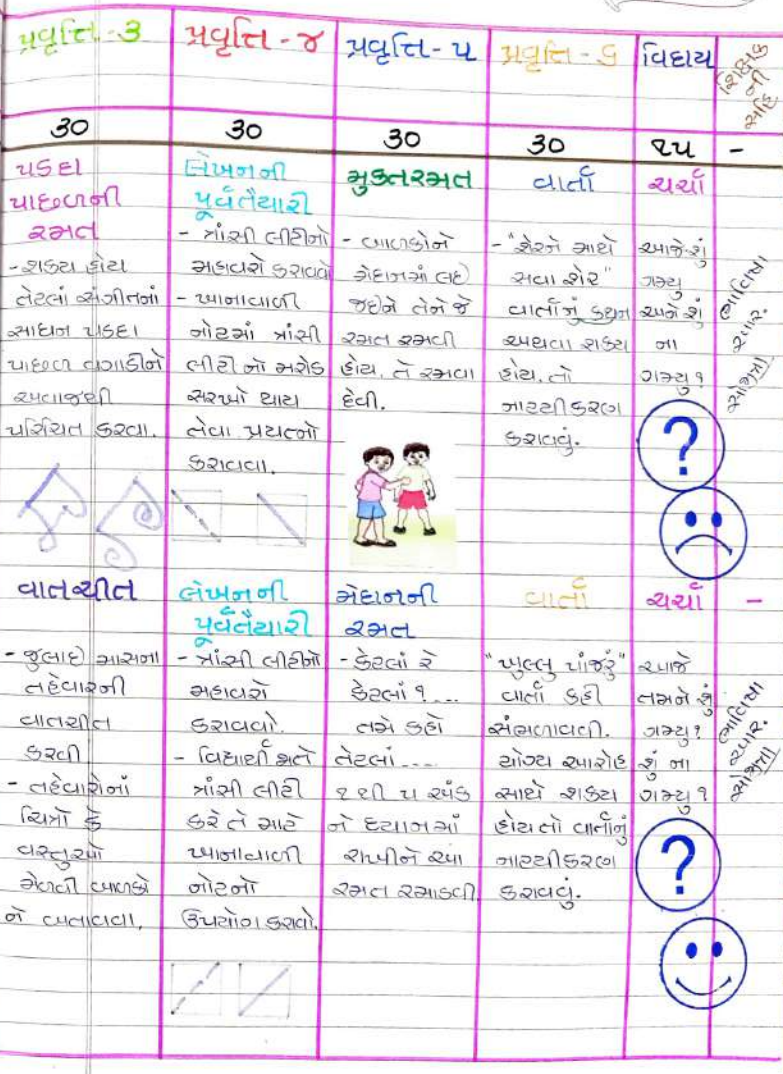 પ્રવૃત્તિ - ૩
પ્રવૃત્તિ - ૪
પ્રવૃત્તિ - ૫
પ્રવૃત્તિ - ૬
વિદાય
શિક્ષક
ની
સહિ
30
30
30
30
૧૫
-
પડદા
પાછળની
રમત
- શક્ય હોય
તેટલાં સંગીતનાં
સાધન પડદા
પાછળ વગાડીને
અવાજથી
પરિચિત કરવા.
લેખનની
પૂર્વતૈયારી
- ત્રાંસી લીટીનો
મહાવરો કરાવવો
- ખાનાવાળી
નોટમાં ત્રાંસી
લીટી નો મરોડ
સરખો થાય
તેવા પ્રયત્નો
કરાવવા.
મુક્તરમત
- બાળકોને
મેદાનમાં લઇ
જઇને તેને જે
રમત રમવી
હોય. તે રમવા
દેવી.
વાર્તા
- "શેરને માથે
સવા શેર"
વાર્તાનું કથન
અથવા શક્ય
હોય. તો
નાટ્યીકરણ
કરાવવું.
ચર્ચા
આજે શું
ગમ્યુ
અને શું
ના
ગમ્યુ ?
?
ભાવિષા
આર.
સોજીત્રા
વાતચીત
- જુલાઇ માસના
તહેવારની
વાતચીત
કરવી
- તહેવારોનાં
ચિત્રો કે
વસ્તુઓ
મેળવી બાળકો
ને બતાવવા.
લેખનની
પૂર્વતૈયારી
- ત્રાંસી લીટીનો
મહાવરો
કરાવવો.
- વિદ્યાર્થી મતે
ત્રાંસી લીટી
કરે તે માટે
ખાનાવાળી
નોટનો
ઉપયોગ કરાવો.
મેદાનની
રમત
- કેટલાં રે
કેટલાં ?...
તમે કહો
તેટલાં ....
૧ થી ૫ અંક
ને ધ્યાનમાં
રાખીને આ
રમત રમાડવી.
વાર્તા
"ખુલ્લુ પાંજરું"
વાર્તા કહી
સંભળાવવી.
યોગ્ય આરોહ
સાથે શક્ય
હોય તો વાર્તાનું
નાટ્યીકરણ
કરાવવું.
ચર્ચા
આજે
તમને શું
ગમ્યુ ?
શું ના
ગમ્યુ ?
?
-
ભાવિષા
આર.
સોજીત્રા